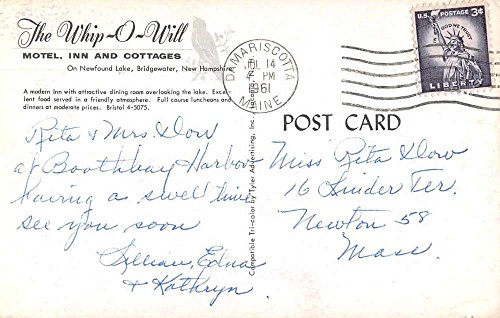 The Whip-O-Will
MOTEL, INN AND COTTAGES
On Newfound Lake, Bridgewater, New Hampshire
A modern Inn with attractive dining room overlooking the lake. Excel-
lent food served in a friendly atmosphere. Full course luncheons and
dinners at moderate prices. Bristol 4-5075.
Rita & Mrs. Dow
at Boothbay Harbor
having a swell time
see you soon
Lillian, Edna
& Kathryn
Compatible Tri-color by Tyler Advertising, Inc.
DAMARISCOTTA
JUL 14
PM
1961
MAINE
U.S. POSTAGE 3¢
IN GOD WE TRUST
LIBERTY
POST CARD
Miss Rita Dow
16 Ter.
Newton 58
Mass.